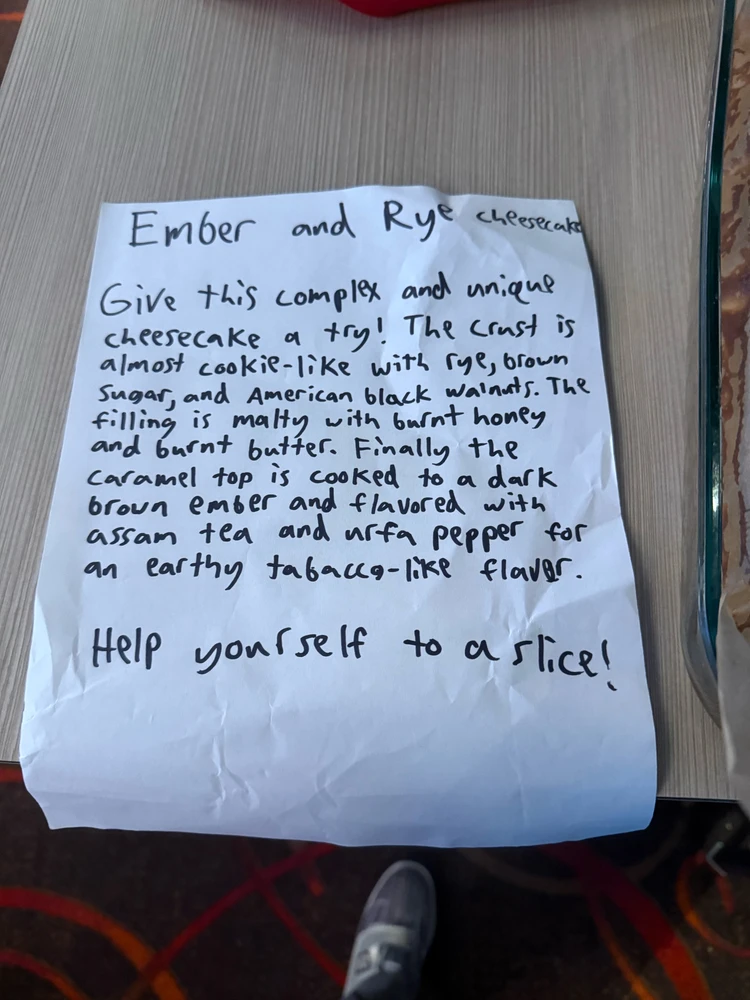 Ember and Rye cheesecake
Give this complex and unique
cheesecake a try! The crust is
almost cookie-like with rye, brown
sugar, and American black walnuts. The
filling is malty with burnt honey
and burnt butter. Finally the
caramel top is cooked to a dark
brown ember and flavored with
assam tea and urfa pepper for
an earthy tabacco-like flavor.
Help yourself to a slice!